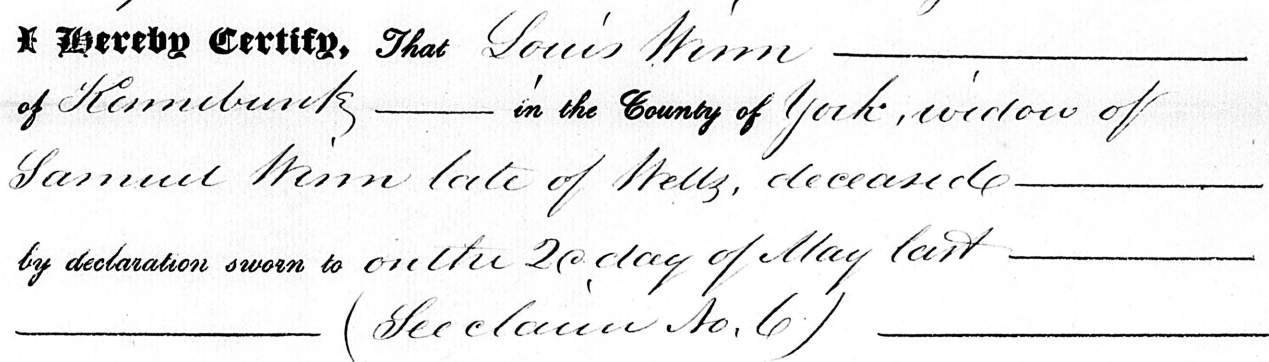 I Hereby Certify, That Louis Winn
of Kennebunk in the County of York, widow of
Samuel Winn late of Wells, deceased
by declaration sworn to on the 2d day of May last
(See claim No. 6)